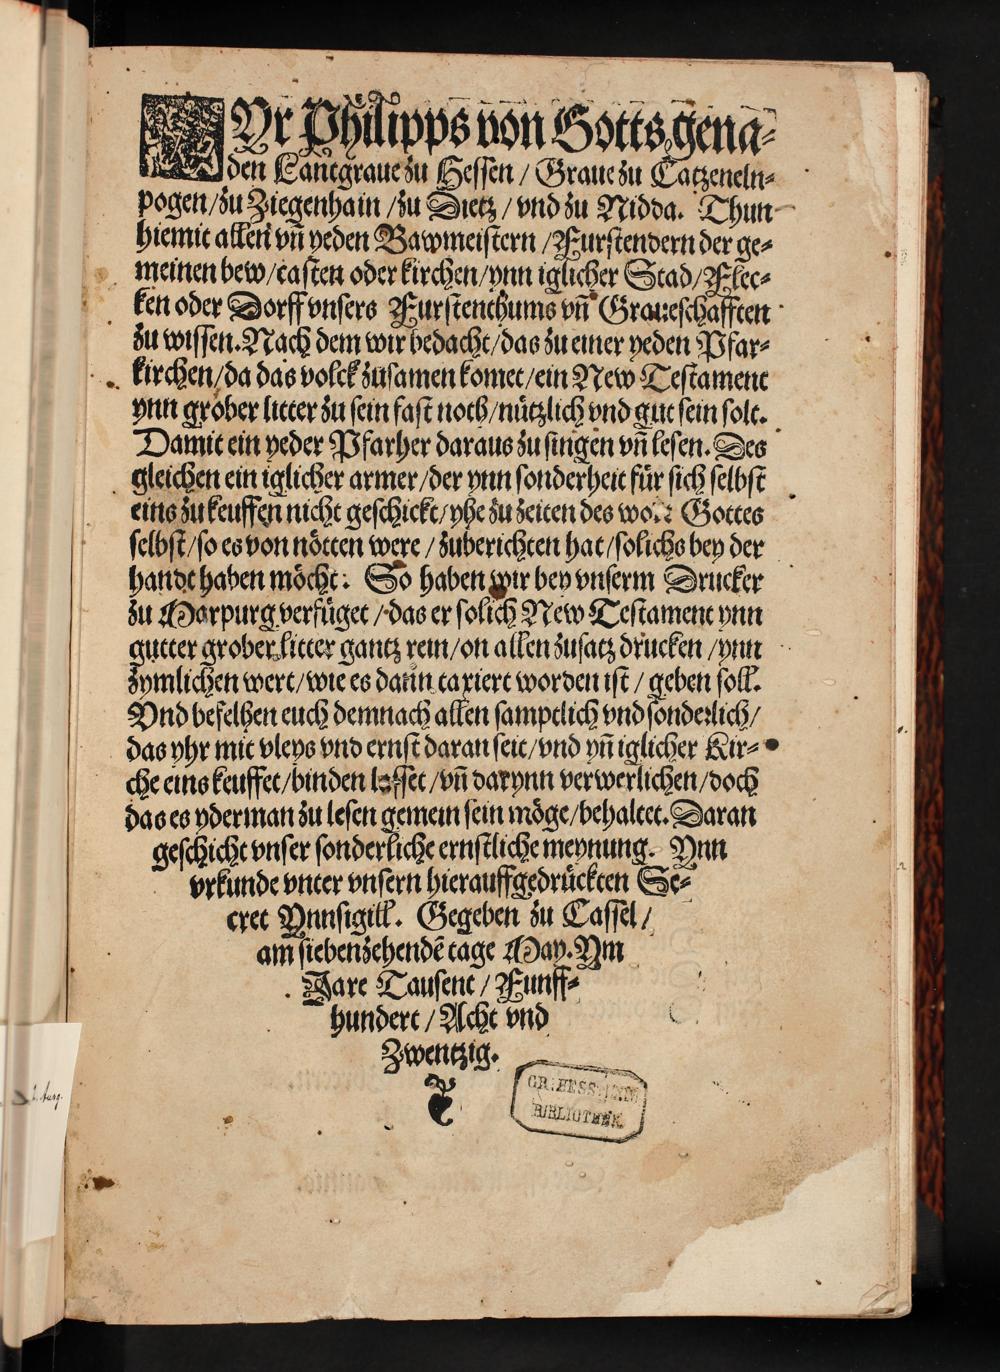 WYr Philipps von Gotts gena-
den Lantgraue zu Hessen / Graue zu Catzeneln-
pogen / zu Ziegenhain / zu Dietz / vnd zu Nidda. Thun
hiemit allen vñ yeden Bawmeistern / Furstendern der ge-
meinen bew / casten oder kirchen / ynn iglicher Stad / Flec-
ken oder Dorff vnsers Furstenthums vñ Graueschafften
zu wissen. Nach dem wir bedacht / das zu einer yeden Pfar-
kirchen / da das volck zusamen komet / ein New Testament
ynn grober litter zu sein fast noth / nützlich vnd gut sein solt.
Damit ein yeder Pfarher daraus zu singen vñ lesen. Des
gleichen ein iglicher armer / der ynn sonderheit für sich selbst
eins zu keuffen nicht geschickt / yhe zu zeiten des wort Gottes
selbst / so es von nötten were / zuberichten hat / solichs bey der
handt haben möcht. So haben wir bey vnserm Drucker
zu Marpurg verfüget / das er solich New Testament ynn
gutter grober litter gantz rein / on allen zusatz drucken / ynn
zymlichen wert / wie es dann taxiert worden ist / geben soll.
Vnd befelhen euch demnach allen samptlich vnd sonderlich /
das yhr mit vleys vnd ernst daran seit / vnd yñ iglicher Kir-
che eins keuffet / binden lasset / vñ darynn verwerlichen / doch
das es yderman zu lesen gemein sein möge / behaltet. Daran
geschicht vnser sonderliche ernstliche meynung. Ynn
vrkunde vnter vnsern hierauffgedrückten Se-
cret Ynnsigill. Gegeben zu Cassel /
am siebenzehendē tage May. Ym
Jare Tausent / Funff-
hundert / Acht vnd
Zwentzig.
BIBLIOTHEK